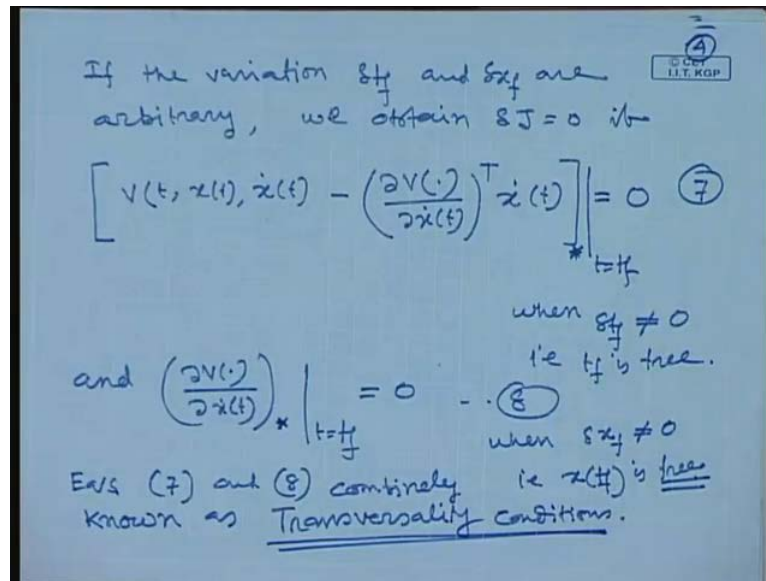 4
© CET
I.I.T. KGP
If the variation δtf and δxf are
arbitrary, we obtain δJ = 0 if
[ V(t, x(t), ẋ(t) - (∂V(.)/∂ẋ(t))^T ẋ(t) ]* |t=tf = 0 (7)
when δtf ≠ 0
i.e tf is free.
and (∂V(.)/∂ẋ(t))* |t=tf = 0 - . (8)
when δxf ≠ 0
Eqs (7) and (8) combinely i.e x(tf) is free
known as Transversality conditions.